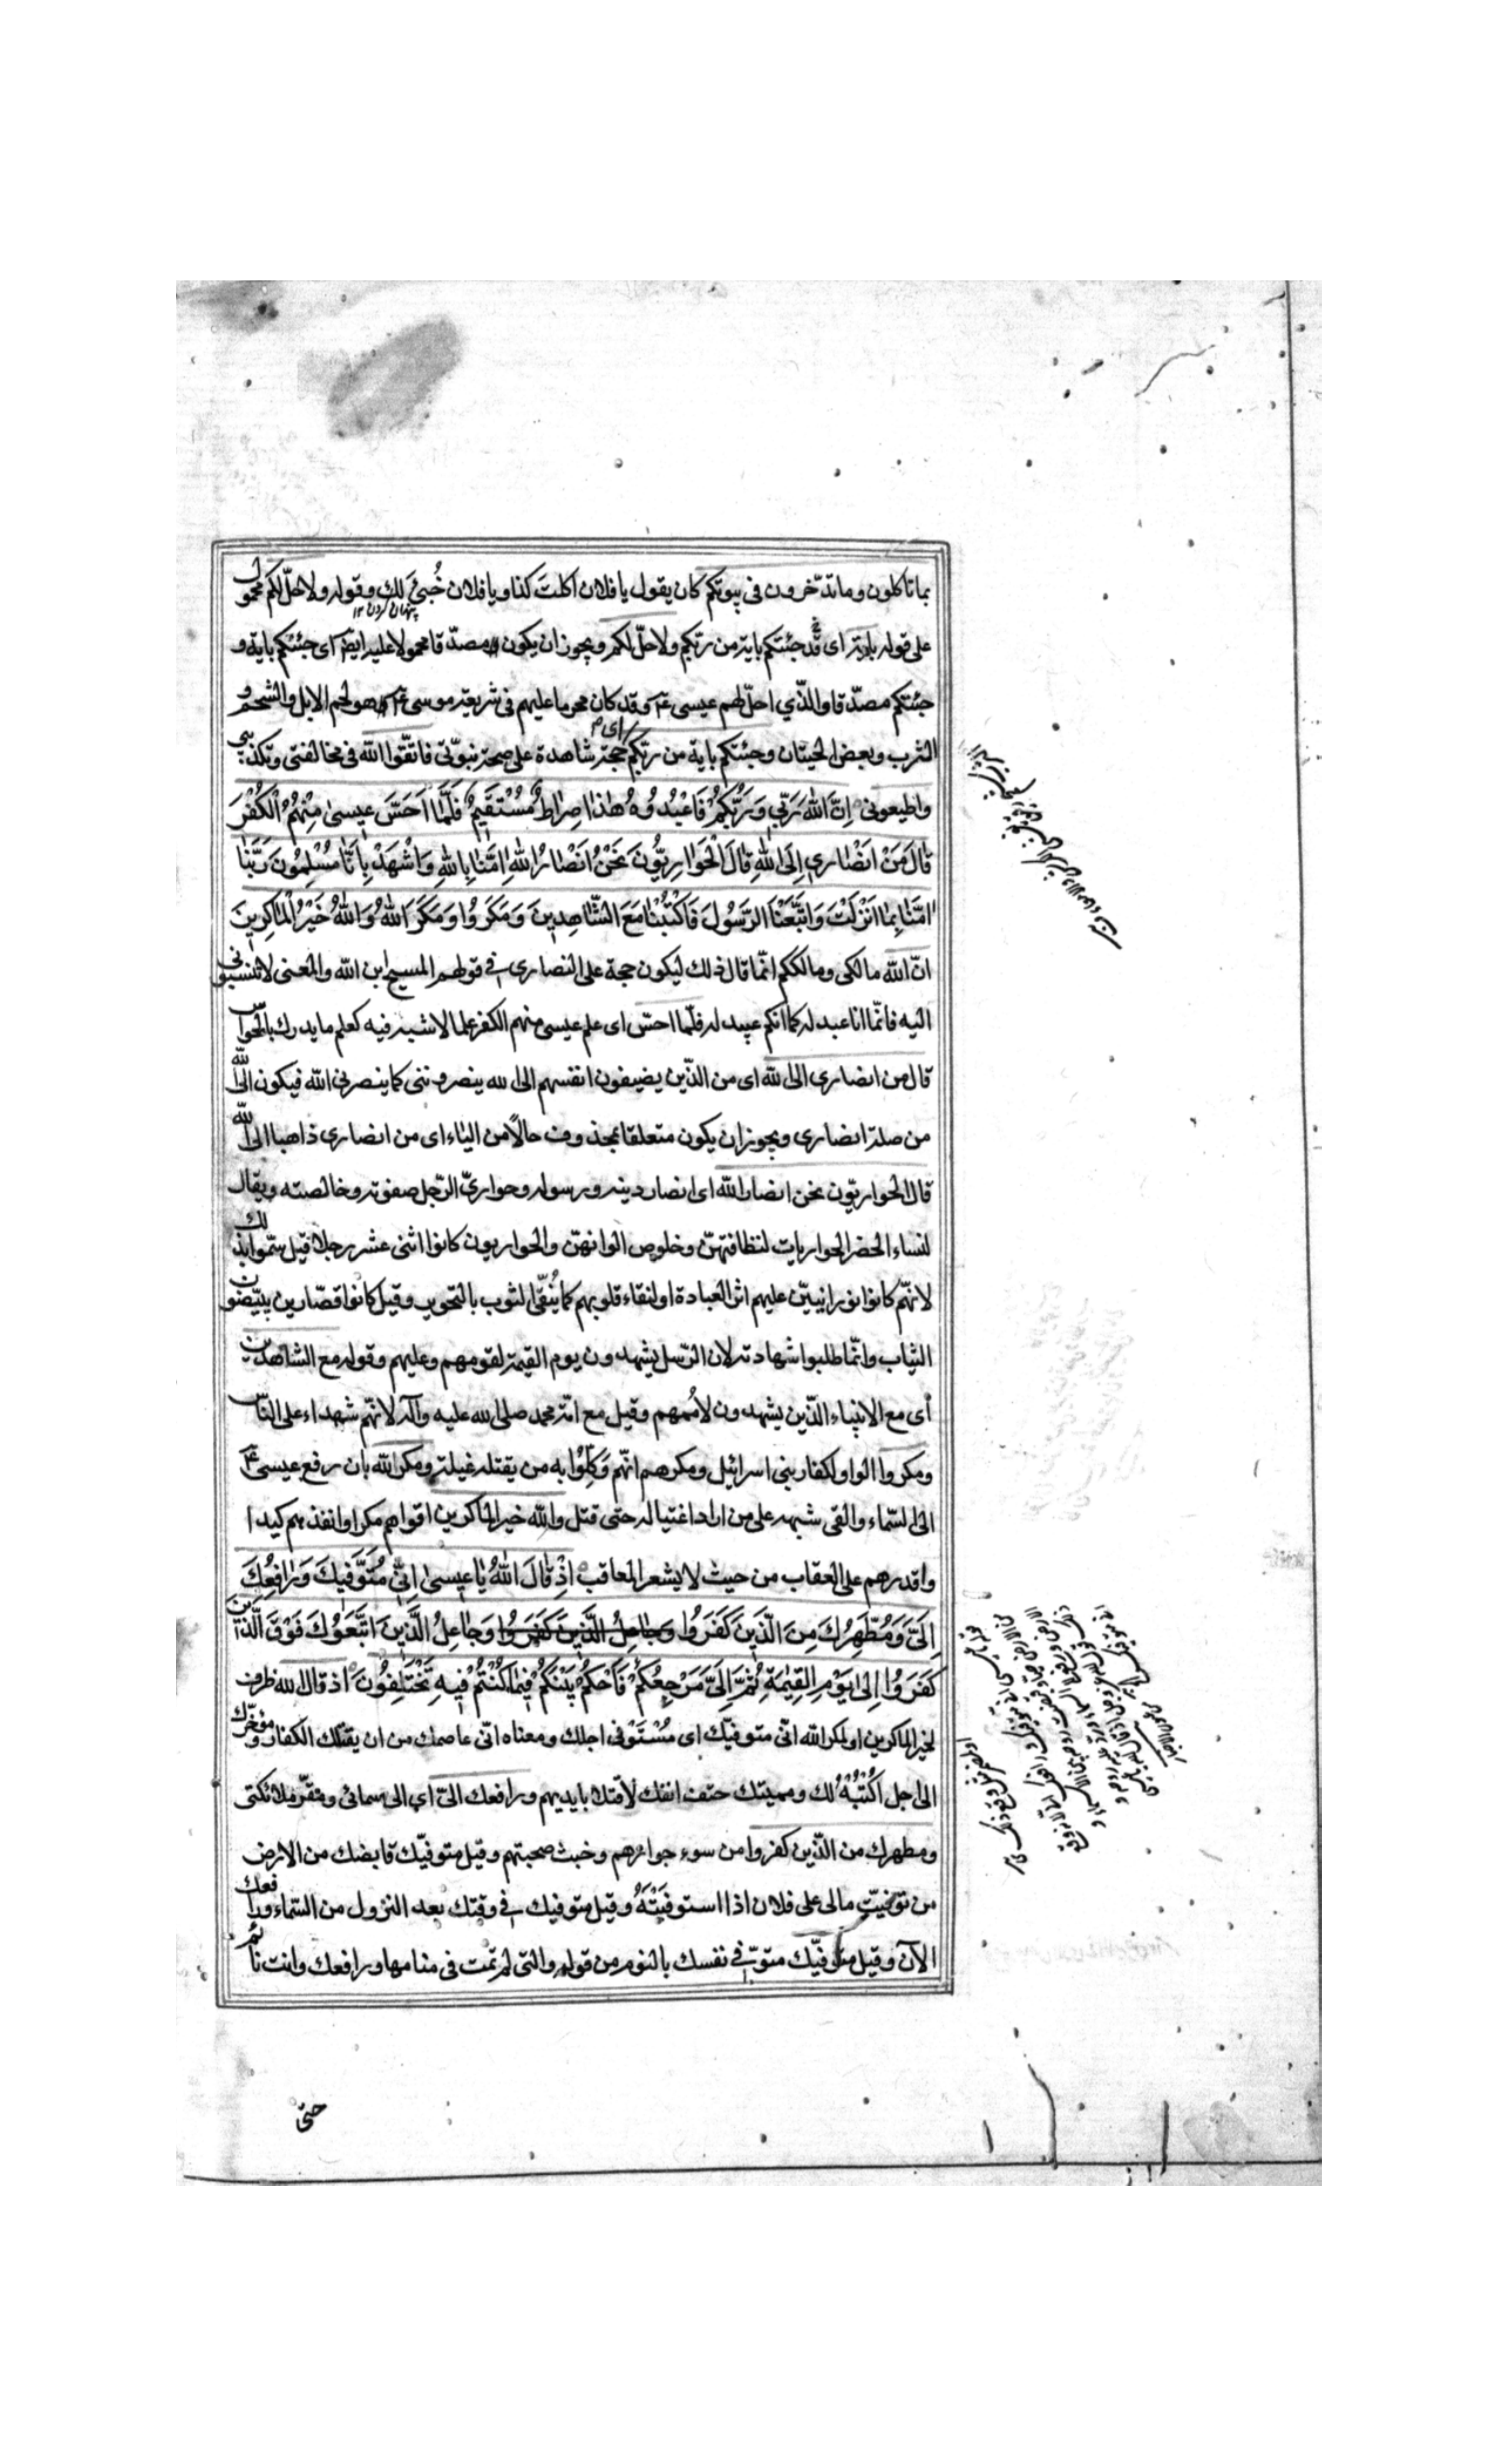 بما تاكلون وما تدّخرون فى بيوتكم كان يقول يا فلان اكلت كذا ويا فلان خُبِئَ لك وقوله ولاحلّ لكم محمول
پنهان كردن ١٢
على قوله باية اى قد جئتكم باية من ربّكم ولاحلّ لكم ويجوز ان يكون مصدّقا محمولا عليه ايضا اى جئتكم باية و
جئتكم مصدّقا والذّي احلّ لهم عيسى ع وقد كان محرما عليهم فى شريعة موسى ع هو لحم الابل والشحوم
اى
الثرب وبعض الحيتان وجئتكم باية من ربّكم حجة شاهدة على صحة نبوّتى فاتّقوا الله فى مخالفتى وتكذيبي
واطيعونى اِنَّ اللهَ رَبّي وَرَبُّكُمْ فَاعْبُدُوهُ هٰذا صِراطٌ مُسْتَقيمٌ فَلَمّا اَحَسَّ عيسىٰ مِنْهُمُ الْكُفْرَ
قالَ مَنْ اَنْصٰاري اِلَى اللهِ قالَ الْحَوٰارِيُّونَ نَحْنُ اَنْصٰارُ اللهِ اٰمَنّا بِاللهِ وَاشْهَدْ بِاَنّا مُسْلِمُونَ رَبَّنا
اٰمَنّا بِما اَنْزَلْتَ وَاتَّبَعْنَا الرَّسُولَ فَاكْتُبْنٰا مَعَ الشّٰاهِدينَ وَمَكَرُوا وَمَكَرَ اللهُ وَاللهُ خَيْرُ الْمٰاكِرينَ
انّ الله مالكى ومالككم انّما قال ذلك ليكون حجة على النصارى فى قولهم المسيح ابن الله والمعنى لا تنسبونى
اليه فانّما انا عبد له كما انكم عبيد له فلمّا احسّ اى علم عيسى منهم الكفر علما لا شبهة فيه كعلم ما يدرك بالحواسّ
قال من انصارى الى الله اى من الذّين يضيفون انفسهم الى الله ينصروننى كما ينصرنى الله فيكون الى الله
من صلة انصارى ويجوز ان يكون متعلقا بمحذوف حالاً من الياء اى من انصارى ذاهبا الى الله
قال الحواريّون نحن انصار الله اى انصار دينه ورسوله وحواريّ الرّجل صفوته وخالصته ويقال
لنساء الحضر الحواريات لنظافتهنّ وخلوص الوانهنّ والحواريون كانوا اثنى عشر رجلا قيل سمّوا بذلك
لانهّم كانوا نورانيّين عليهم اثر العبادة او لنقاء قلوبهم كما يُنقّى الثوب بالتحوير وقيل كانوا قصّارين يبيّضون
الثياب وانّما طلبوا شهادته لان الرّسل يشهدون يوم القيمة لقومهم وعليهم وقوله مع الشاهدين
أى مع الانبياء الذّين يشهدون لأممهم وقيل مع امّة محمد صلى الله عليه وآله لانهّم شهداء على النّاس
ومكروا الواو لكفار بنى اسرائيل ومكرهم انهّم وَكّلُوا به من يقتله غيلة ومكر الله بان رفع عيسى ع
الى السّماء والقى شبهه على من اراد اغتياله حتى قتل والله خير الماكرين اقواهم مكرا وانفذهم كيدا
واقدرهم على العقاب من حيث لا يشعر المعاقب اِذْ قالَ اللهُ يٰا عيسىٰ اِنّي مُتَوَفّيكَ وَرٰافِعُكَ
اِلَيَّ وَمُطَهِّرُكَ مِنَ الَّذينَ كَفَرُوا وجاعل الّذين كفروا وَجٰاعِلُ الَّذينَ اتَّبَعُوكَ فَوْقَ الَّذينَ
كَفَرُوا اِلىٰ يَوْمِ القِيٰمَةِ ثُمَّ اِلَيَّ مَرْجِعُكُمْ فَاَحْكُمُ بَيْنَكُمْ فيمٰا كُنْتُمْ فيهِ تَخْتَلِفُونَ اذ قال الله ظرف
لخير الماكرين او لمكر الله انّى متوفيّك اى مُسْتَوْفى اجلك ومعناه انّى عاصمك من ان يقتلك الكفار ومؤخّرك
الى اجل اكْتُبُهُ لك ومميتك حتف انفك لا قتلا بايديهم ورافعك الىّ اي الى سمائى ومقرّ ملائكتى
ومطهرك من الذّين كفروا من سوء جوارهم وخبث صحبتهم وقيل متوفيّك قابضك من الارض
من توفيّت مالى على فلان اذا استوفيَتَهُ وقيل متوفيك فى وقتك بعد النزول من السّماء ورافعك
الآن وقيل متوفيّك متوفّى نفسك بالنوم من قوله والتى لم تمت فى منامها ورافعك وانت نائم
حتى